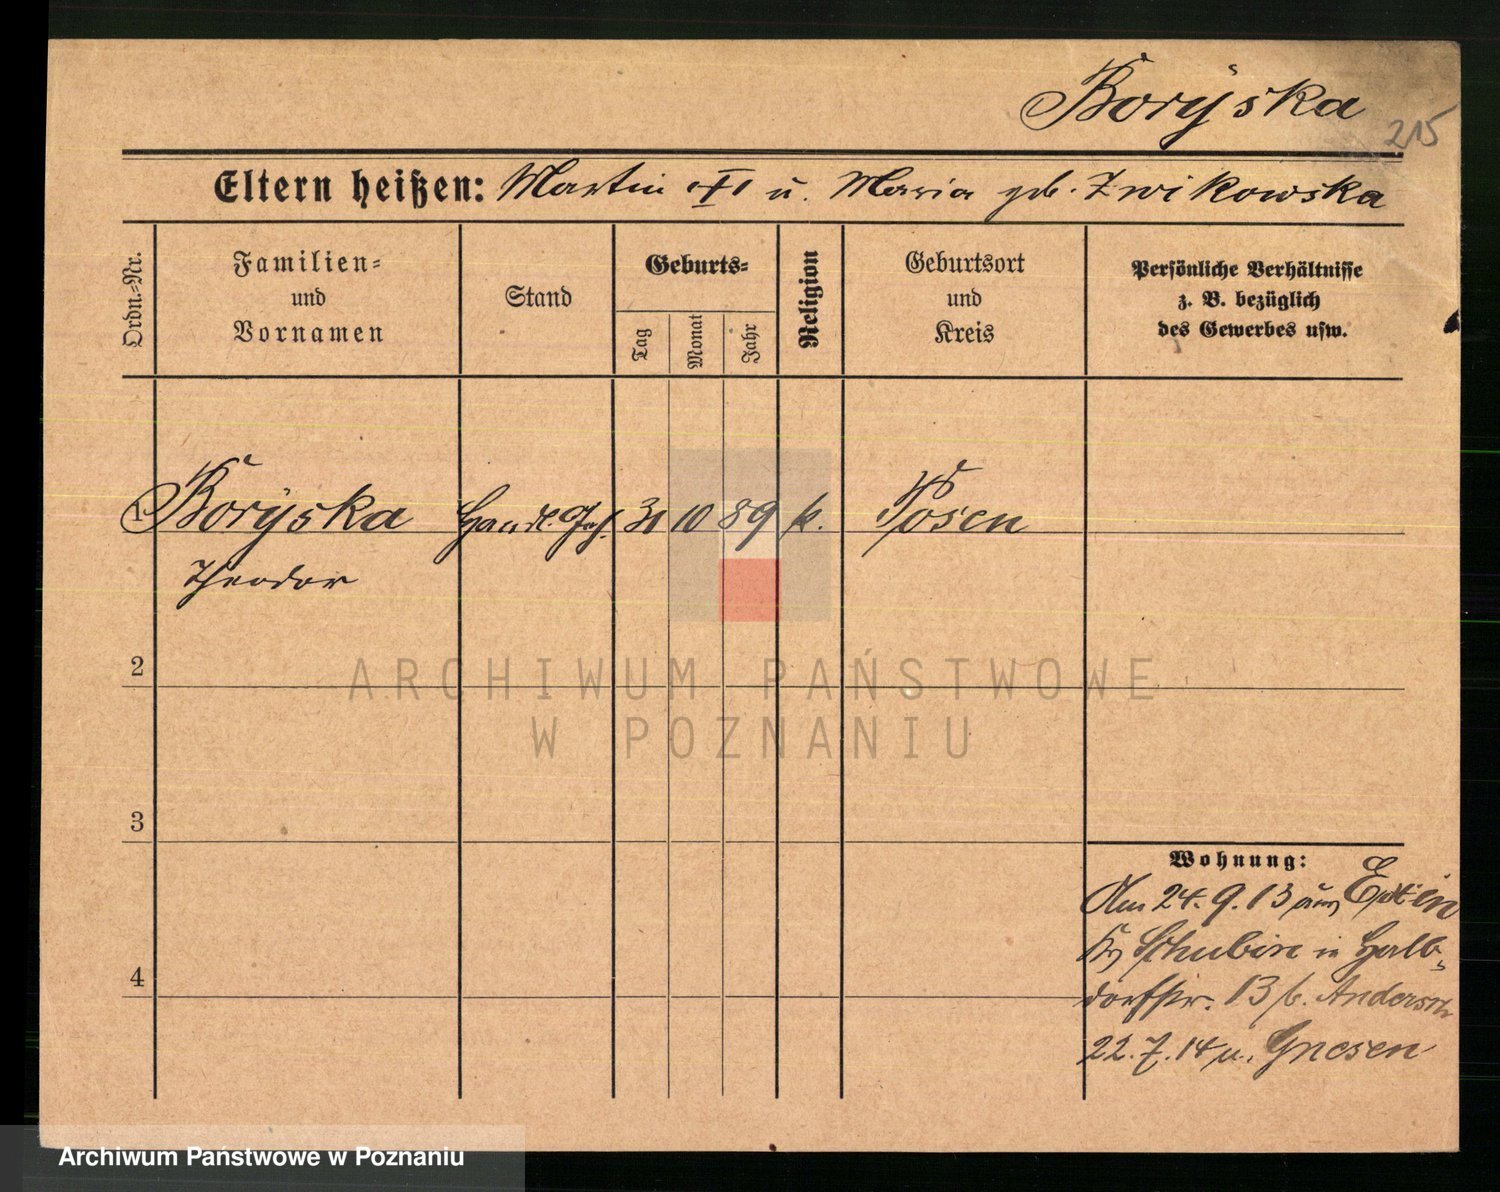 Boryska
215
Eltern heißen: Martin u. Maria geb. Zwikowska
Ordn.-Nr.
Familien-
und
Vornamen
Stand
Geburts-
Tag
Monat
Jahr
Religion
Geburtsort
und
Kreis
Persönliche Verhältnisse
z. B. bezüglich
des Gewerbes usw.
1 Boryska Handl. Geh. 31 10 89 k. Posen
Theodor
2
3
4
Wohnung:
Am 24.9.13 aus
Schubin in Halb-
dorfstr. 13 b.
22.7.14 n. Gnesen
ARCHIWUM PAŃSTWOWE
W POZNANIU
Archiwum Państwowe w Poznaniu